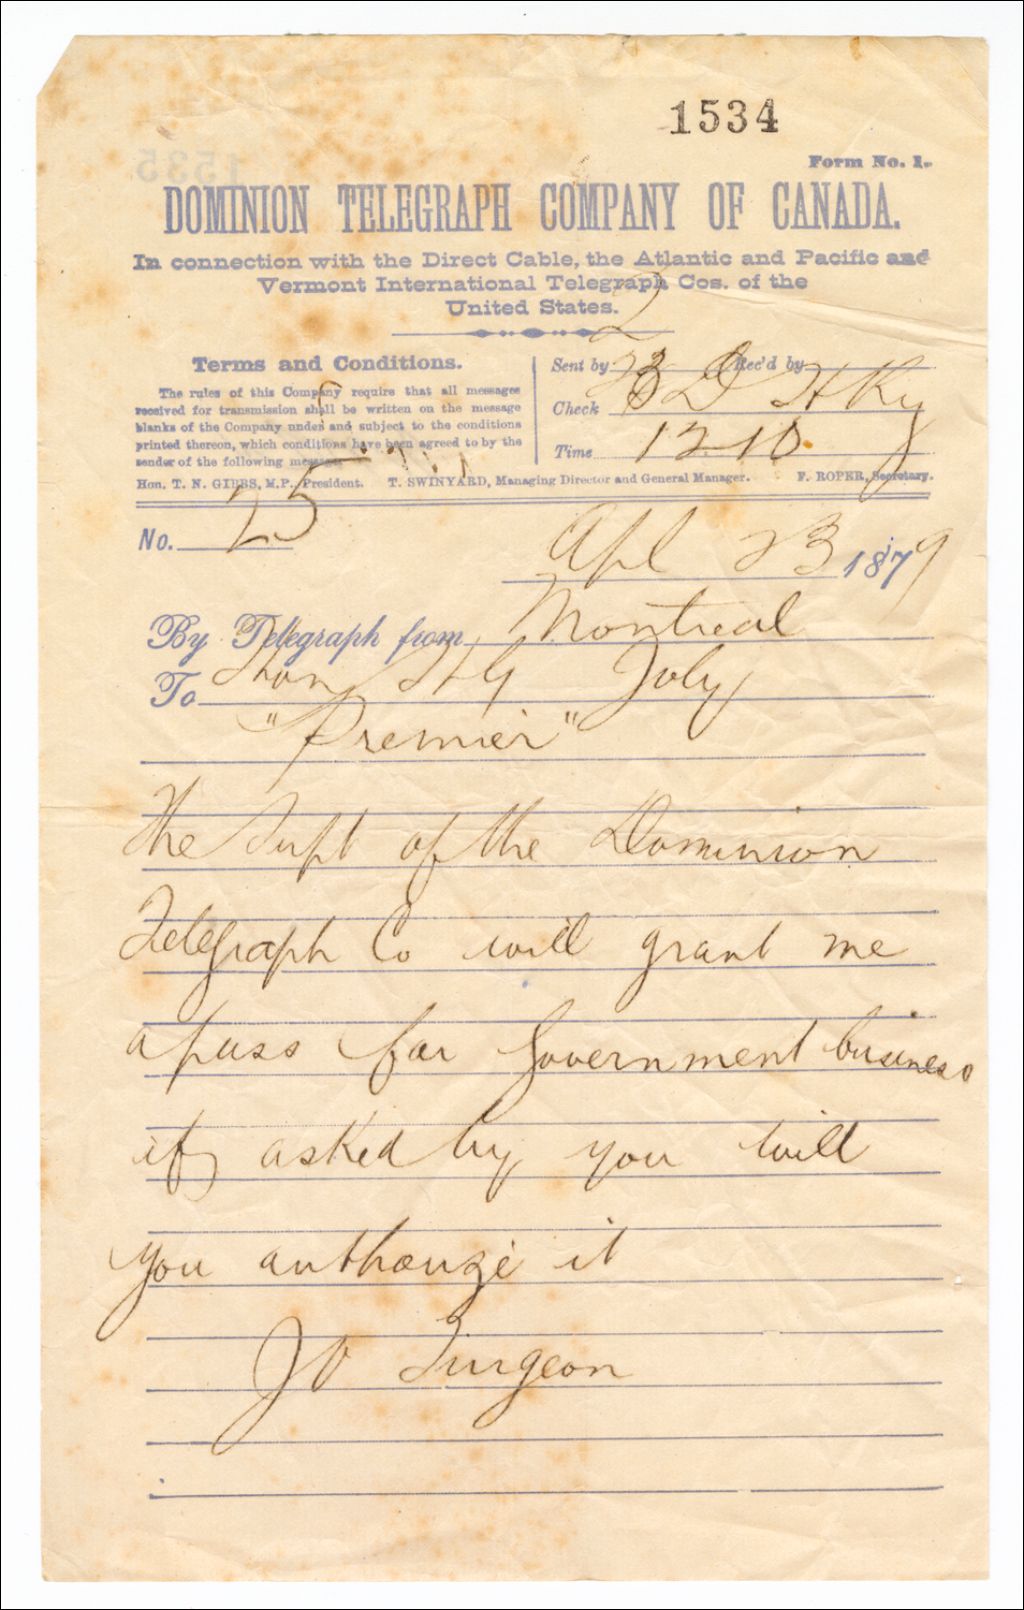 1534
Form No. 1.
DOMINION TELEGRAPH COMPANY OF CANADA.
In connection with the Direct Cable, the Atlantic and Pacific and
Vermont International Telegraph Cos. of the
United States.
Terms and Conditions.
The rules of this Company require that all messages
received for transmission shall be written on the message
blanks of the Company under and subject to the conditions
printed thereon, which conditions have been agreed to by the
sender of the following message.
Sent by Rec'd by
Check
Time 12 10
Hon. T. N. GIBBS, M.P., President. T. SWINYARD, Managing Director and General Manager. F. ROPER, Secretary.
No. 25
Apl 23 1879
By Telegraph from Montreal
To Hon H G Joly
"Premier"
The Supt of the Dominion
Telegraph Co will grant me
a pass for Government business
if asked by you will
you authorize it
J O Turgeon